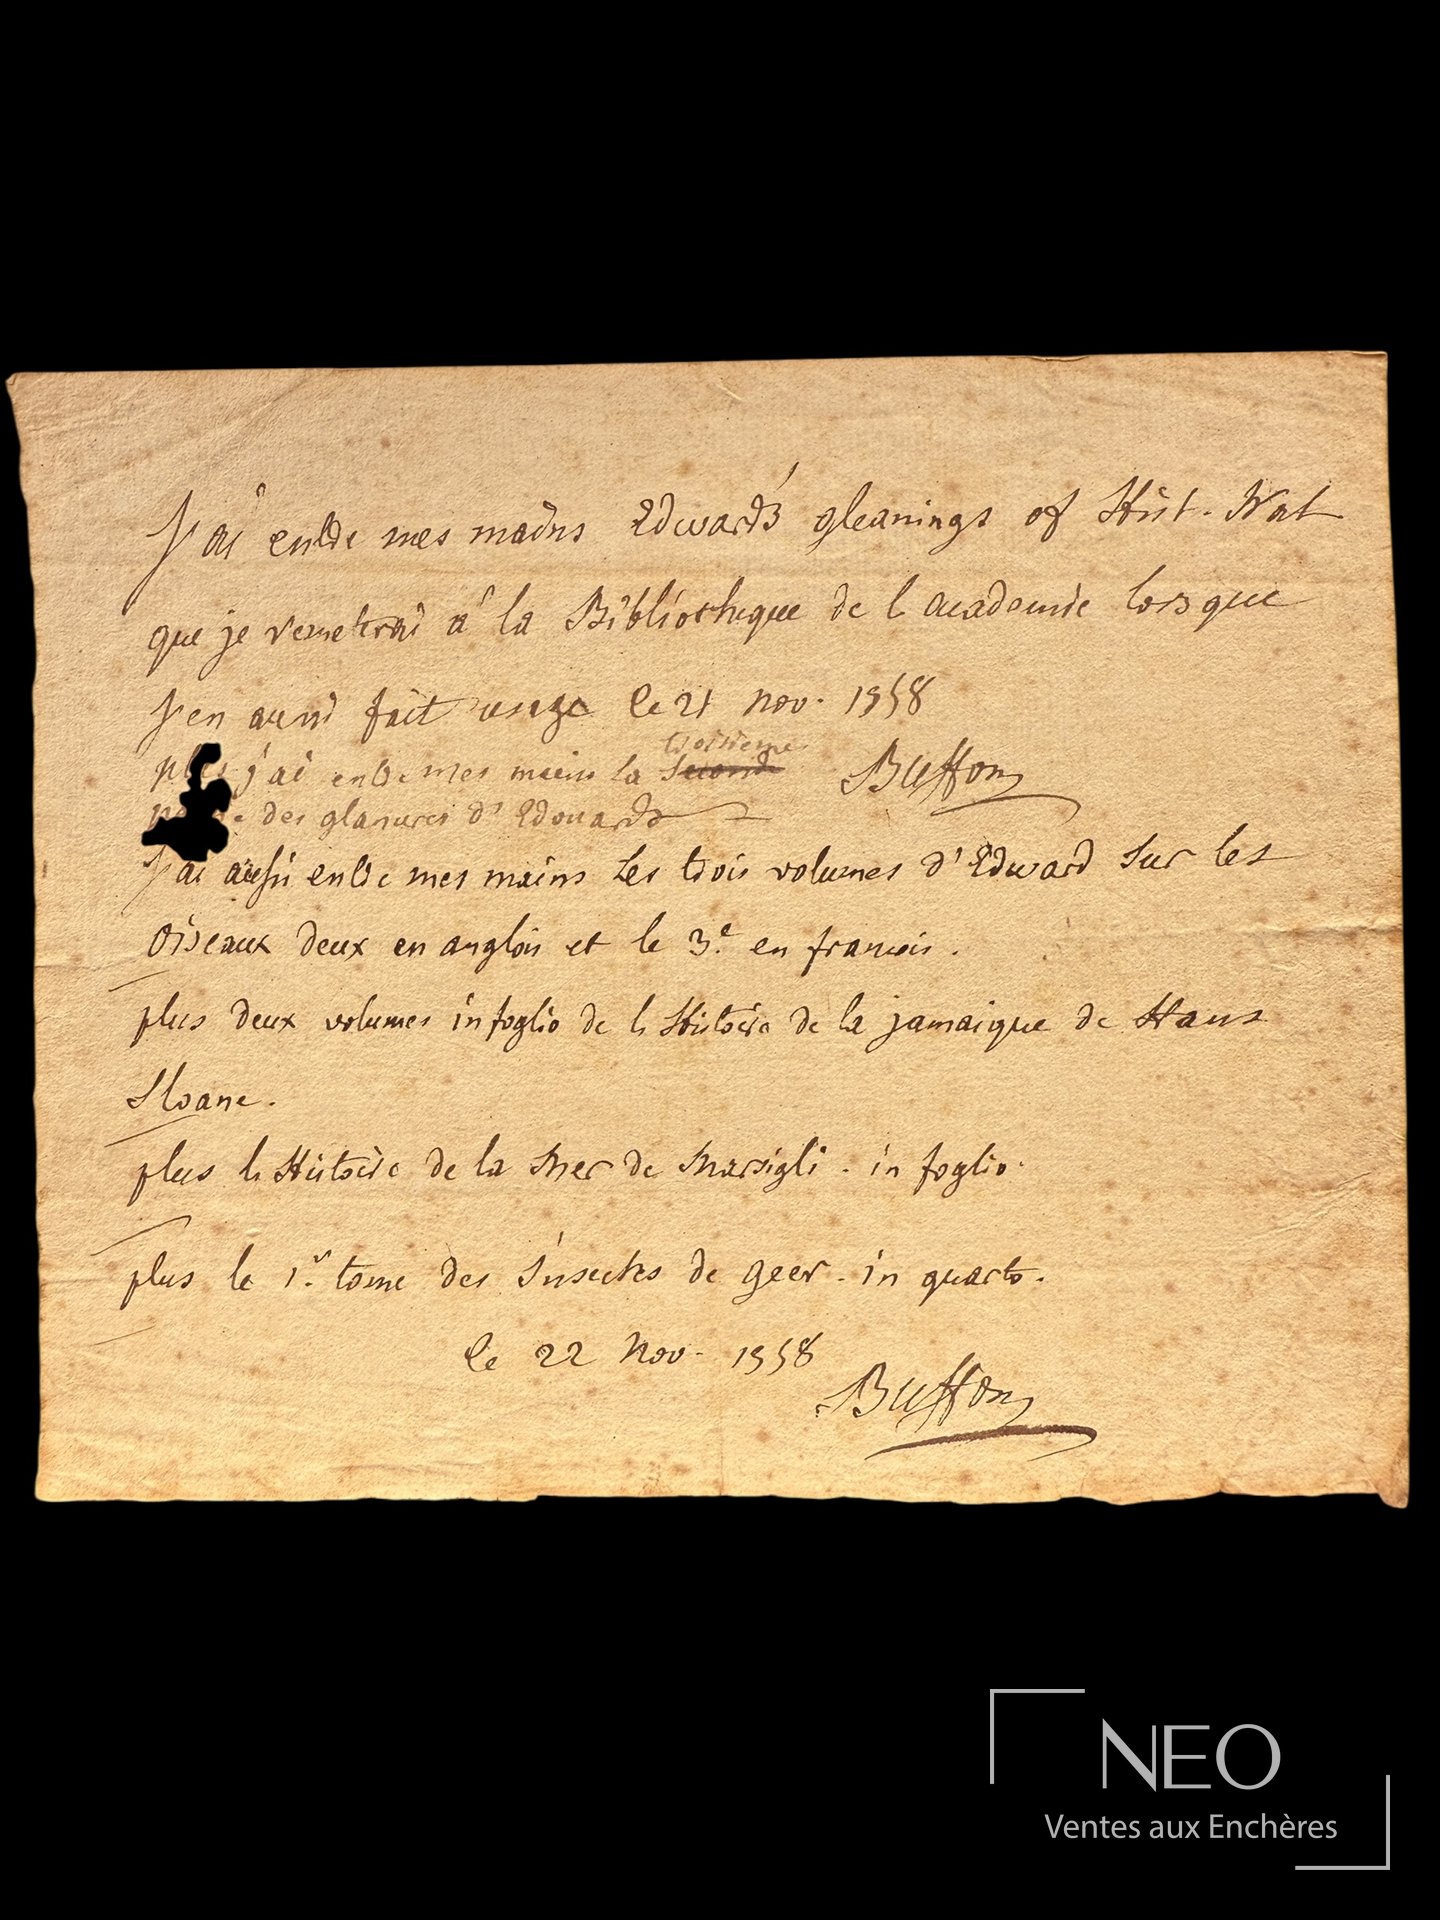 J'ai entre mes mains Edward's gleanings of Hist. Nat
que je remetrai a la Bibliotheque de l academie lorsque
j'en aurai fait usage le 21 nov. 1758
troisieme
plus j'ai entre mes mains la seconde Buffon
des glanures d'Edouard
J'ai aussi entre mes mains Les trois volumes d'Edward sur les
oiseaux deux en anglois et le 3e. en francois.
plus deux volumes in foglio de l Histoire de la jamaique de Hans
Sloane.
plus l Histoire de la Mer de Marsigli. in foglio.
plus le 1r. tome des Insectes de geer. in quarto.
le 22 Nov. 1758
Buffon
NEO
Ventes aux Enchères